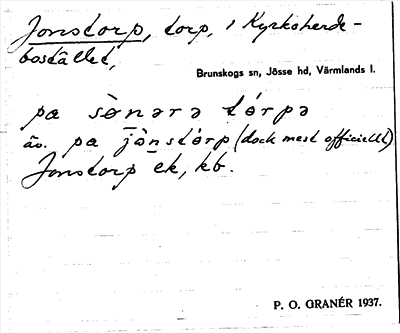 Jonstorp, torp, i Kyrkoherde-
bostället,
Brunskogs sn, Jösse hd, Värmlands l.
pa sònərə tórpə
äv. pa jònstórp (dock mest officiellt)
Jonstorp ek, kb.
P. O. GRANÉR 1937.